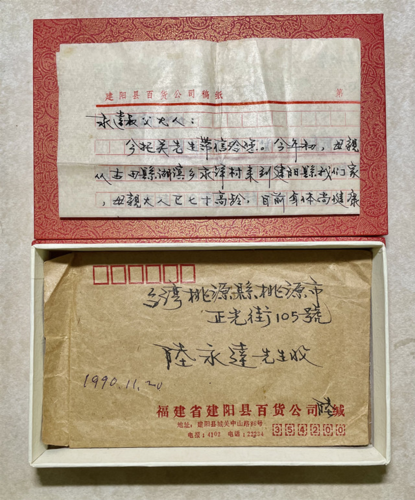 建阳县百货公司稿纸 第
永達父大人：
今托吴先生帶信给您。今年初，母親
从古田縣湖濱乡永洋村来到建阳縣我们家
，母親大人已七十高龄，目前身体尚健康
台湾桃源縣桃源市
正光街105號
陸永達先生收
1990.11.20
福建省建阳县百货公司 陸缄
地址：建阳县城关中山路
电挂：4192 电话：22234 354200